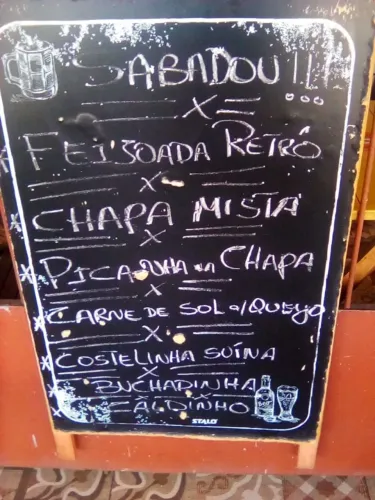 SABADOU!!
X
FEIJOADA RETRÔ
X
CHAPA MISTA
X
PICANHA na CHAPA
X
CARNE DE SOL c/ QUEIJO
X
COSTELINHA SUÍNA
X
BUCHADINHA
X
CALDINHO
STALO